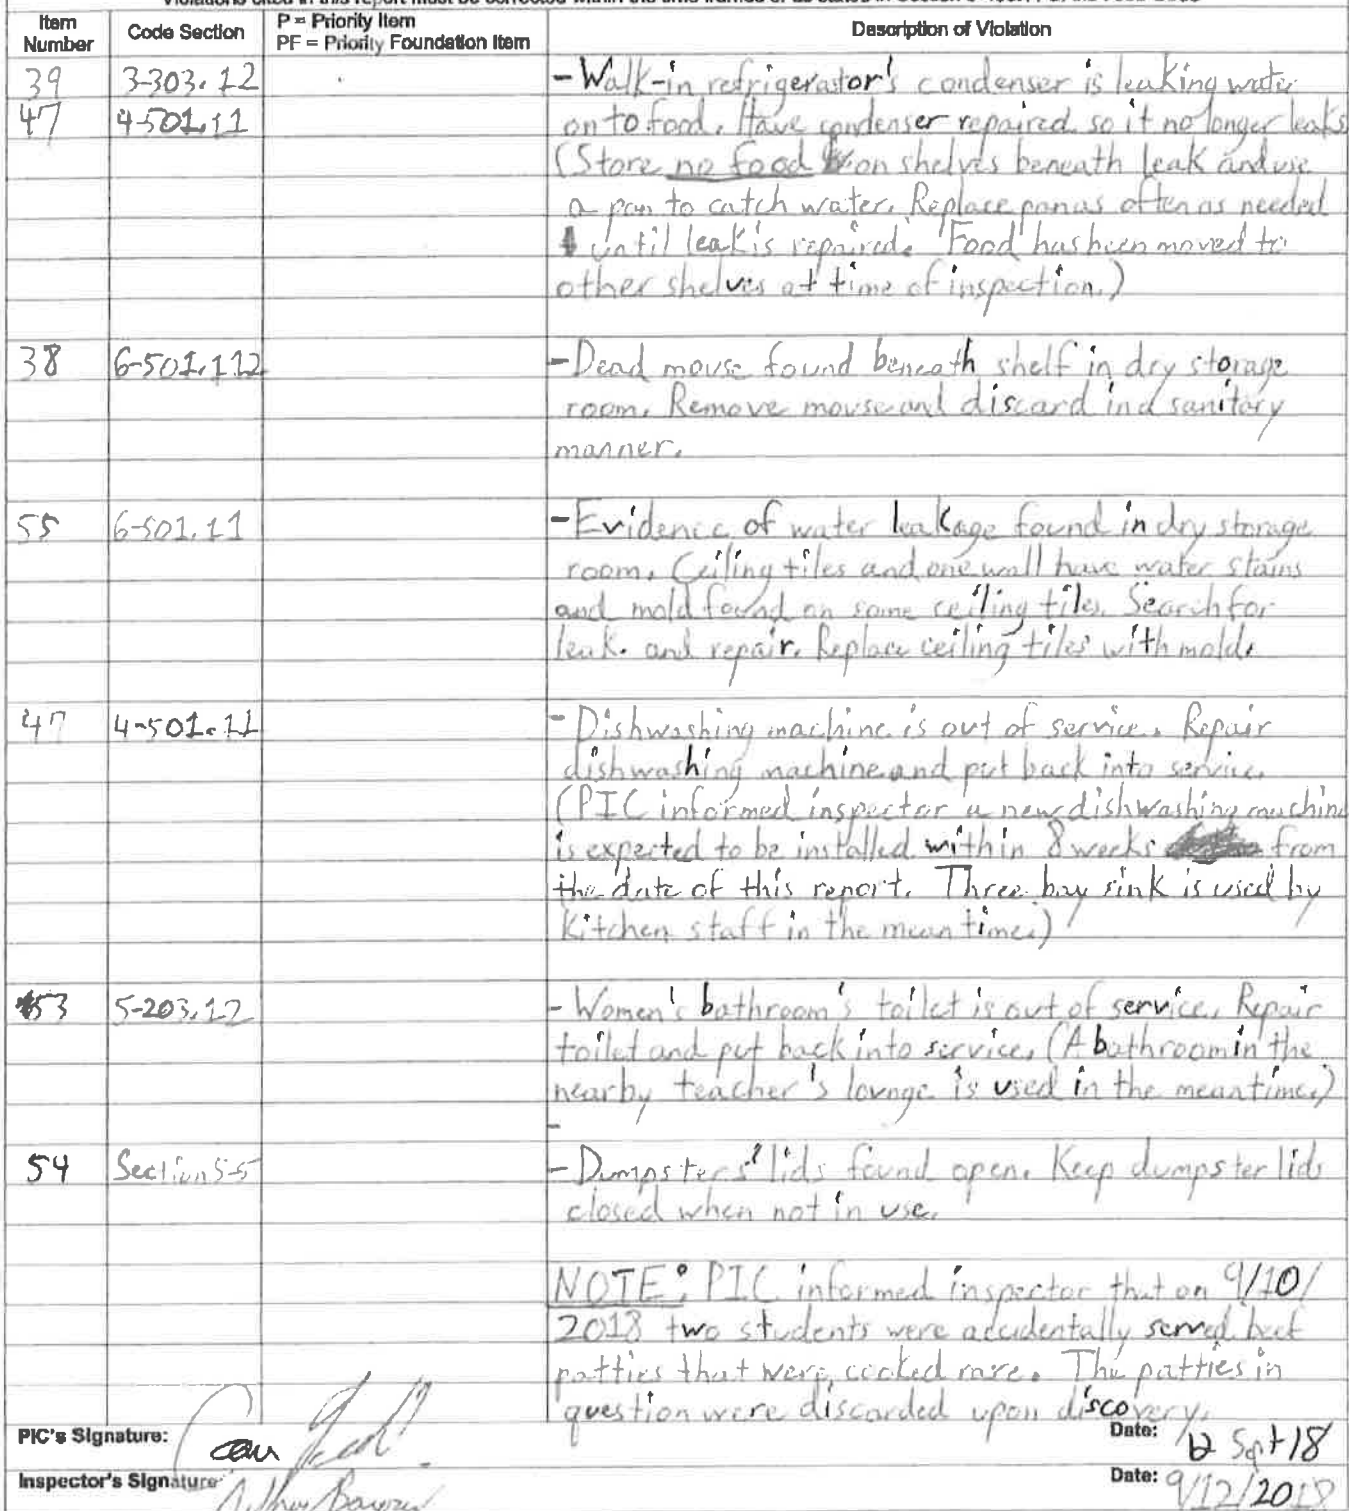 Item Number
Code Section
P = Priority Item
PF = Priority Foundation Item
Description of Violation
39 3-303.12 - Walk-in refrigerator's condenser is leaking water
47 4-501.11 onto food. Have condenser repaired so it no longer leaks
(Store no food on shelves beneath leak and use
a pan to catch water. Replace pan as often as needed
until leak is repaired. Food has been moved to
other shelves at time of inspection.)
38 6-501.112 - Dead mouse found beneath shelf in dry storage
room. Remove mouse and discard in a sanitary
manner.
55 6-501.11 - Evidence of water leakage found in dry storage
room. Ceiling tiles and one wall have water stains
and mold found on some ceiling tiles. Search for
leak. and repair. Replace ceiling tiles with mold.
47 4-501.11 - Dishwashing machine is out of service. Repair
dishwashing machine and put back into service.
(PIC informed inspector a new dishwashing machine
is expected to be installed within 8 weeks from
the date of this report. Three bay sink is used by
kitchen staff in the meantime.)
53 5-203.12 - Women's bathroom's toilet is out of service. Repair
toilet and put back into service. (A bathroom in the
nearby teacher's lounge is used in the meantime.)
-
54 Section 5-5 - Dumpsters' lids found open. Keep dumpster lids
closed when not in use.
NOTE: PIC informed inspector that on 9/10/
2018 two students were accidentally served beef
patties that were cooked rare. The patties in
question were discarded upon discovery.
PIC's Signature: Date: 12 Sept 18
Inspector's Signature Date: 9/12/2018